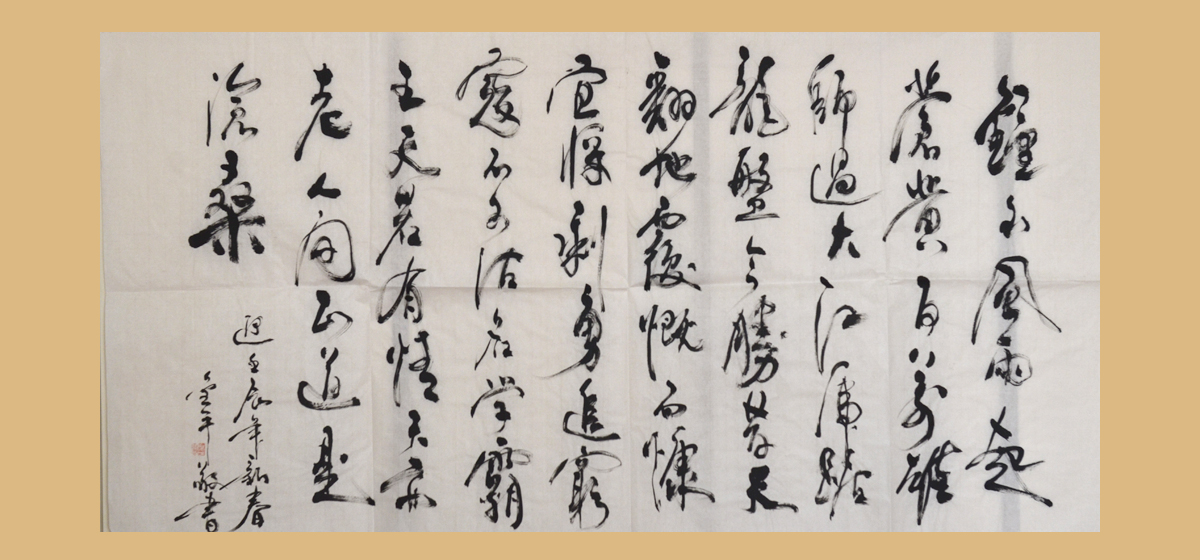 鍾山風雨起
蒼黄百萬雄
師過大江虎踞
龍盤今勝昔天
翻地覆慨而慷
宜將剩勇追窮
寇不可沽名学霸
王天若有情天亦
老人间正道是
滄桑
迎壬辰年新春
敬書